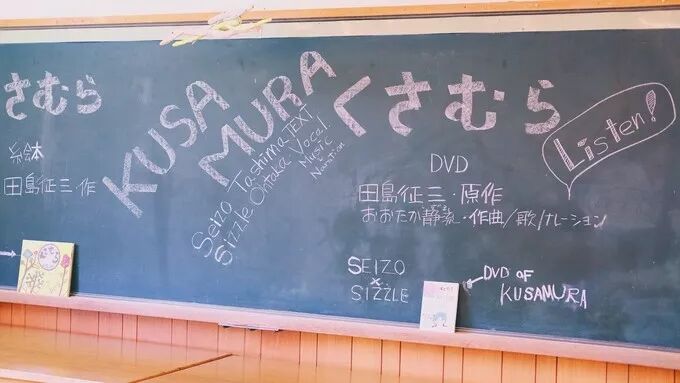 さむら
絵本
田島征三 作
→
KUSA
MURA
Seizo Tashima TEXT
Sizzle Ohtaka Vocal
Music
Narration
くさむら
Listen!
DVD
田島征三・原作
おおたか静流・作曲/歌/ナレーション
SEIZO
×
SIZZLE
DVD OF
KUSAMURA